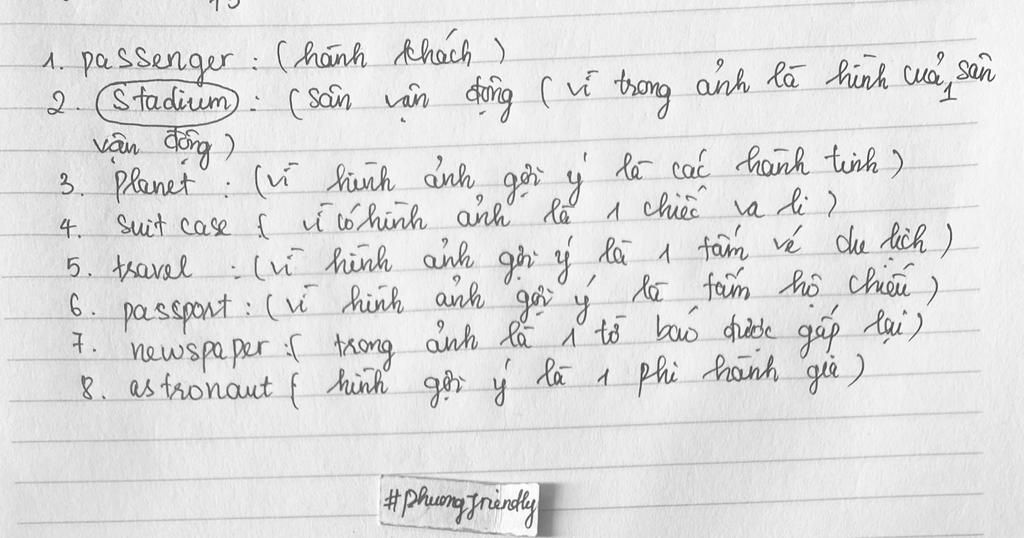 1. passenger : (hành khách)
2. Stadium : (sân vận động (vì trong ảnh là hình của 1 sân
vận động)
3. planet : (vì hình ảnh gợi ý là các hành tinh)
4. suit case ( vì có hình ảnh là 1 chiếc va li)
5. travel : (vì hình ảnh gợi ý là 1 tấm vé du lịch)
6. passport : (vì hình ảnh gợi ý là tấm hộ chiếu)
7. newspaper :( trong ảnh là 1 tờ báo được gấp lại)
8. astronaut ( hình gợi ý là 1 phi hành gia)
#phuongfriendly